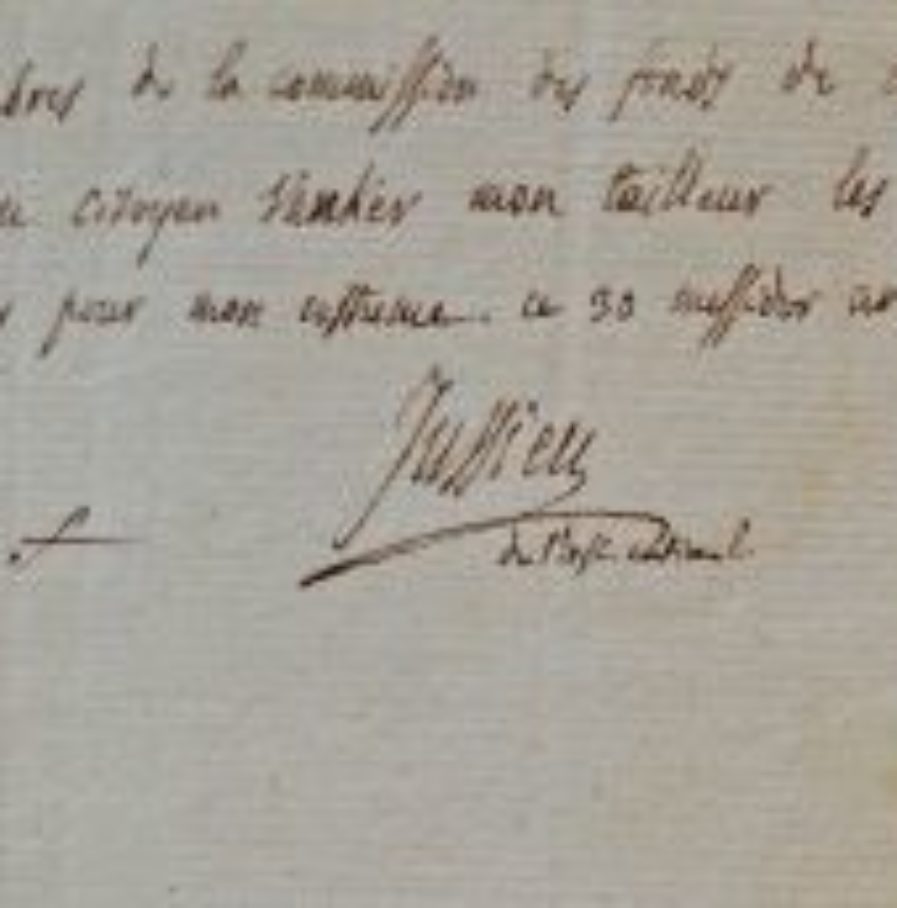 bres de la commission des fonds de
citoyen mon tailleur les
pour mon costume. ce 30 messidor an
Jussieu
de l'inst. national.